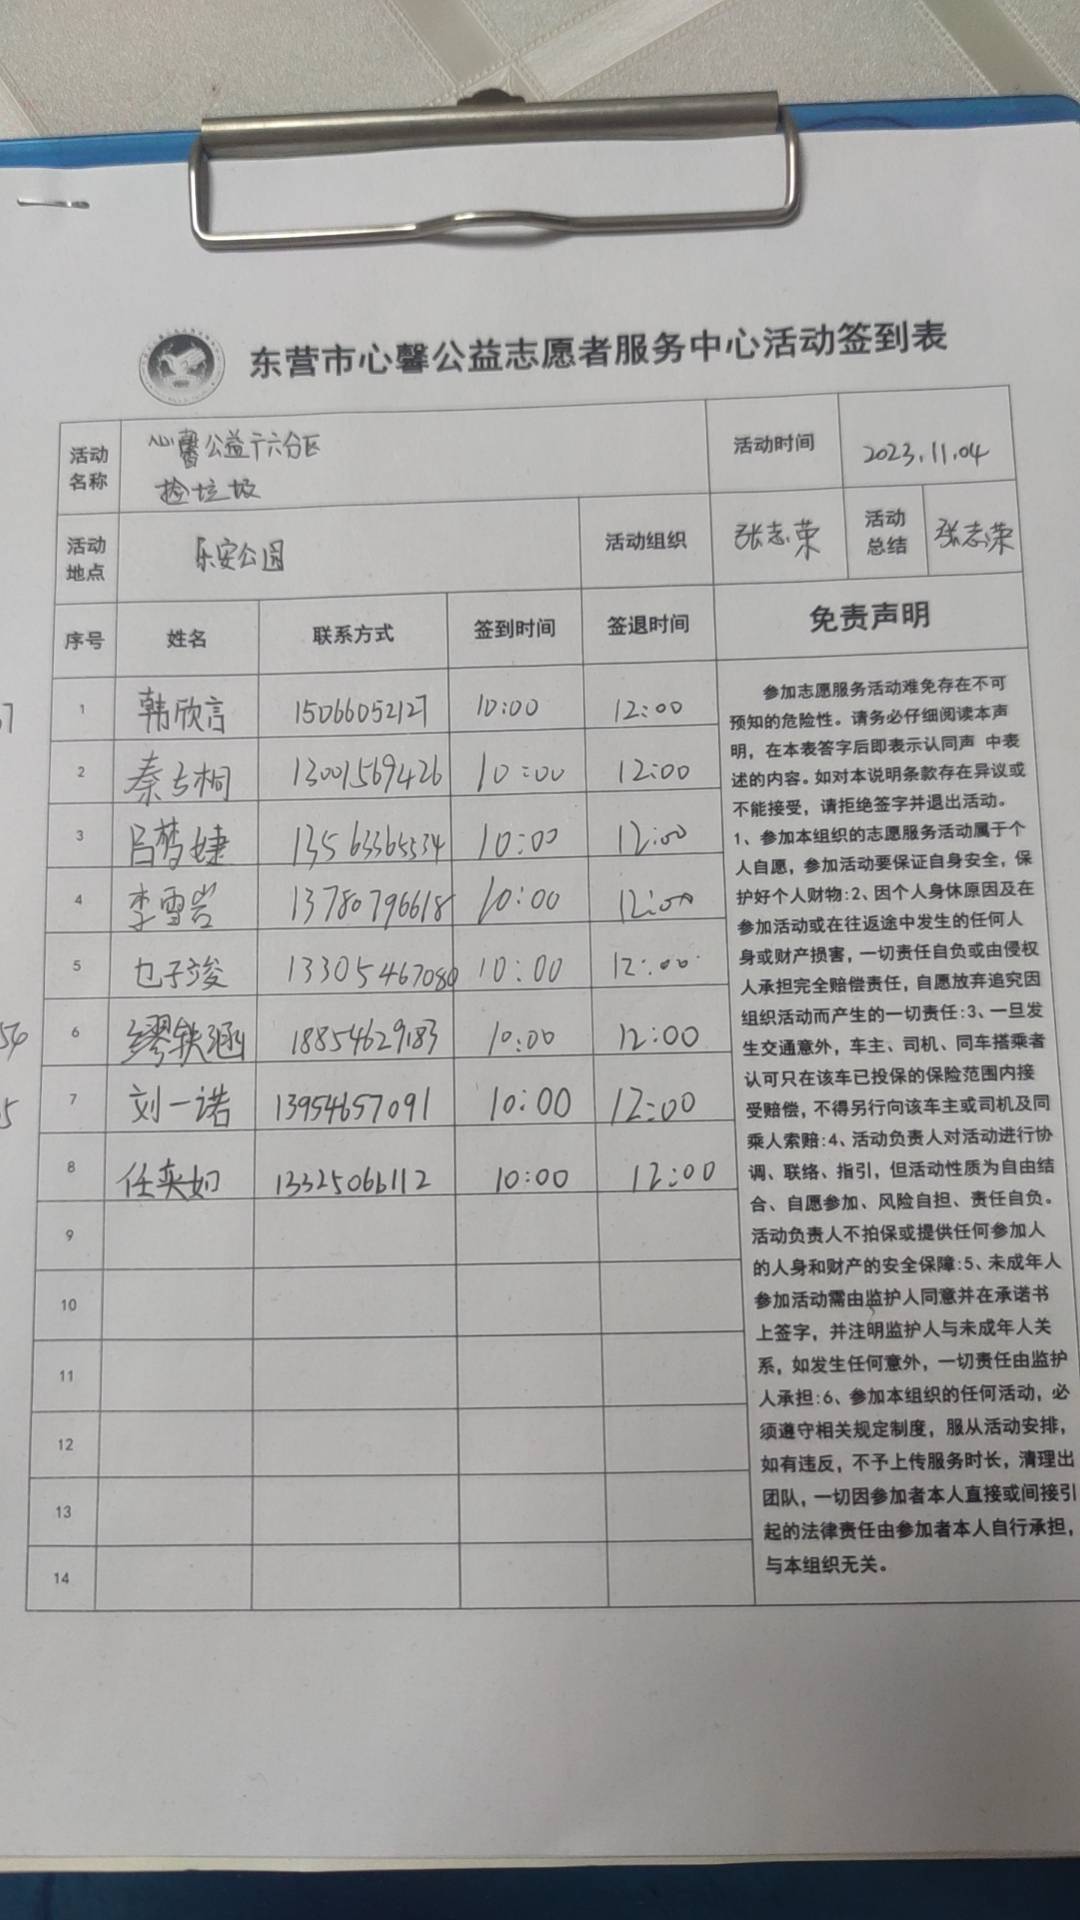 东营市心馨公益志愿者服务中心活动签到表
活动名称 心馨公益十六分区 捡垃圾 活动时间 2023.11.04
活动地点 乐安公园 活动组织 张志荣 活动总结 张志荣
序号 姓名 联系方式 签到时间 签退时间 免责声明
1 韩欣言 15066052127 10:00 12:00
2 秦 桐 13001569426 10:00 12:00
3 吕梦婕 13563365534 10:00 12:00
4 李雪岩 13780796618 10:00 12:00
5 子 13305467080 10:00 12:00
6 缪轶涵 18854629183 10:00 12:00
7 刘一诺 13954657091 10:00 12:00
8 任奕如 13325066112 10:00 12:00
9
10
11
12
13
14
参加志愿服务活动难免存在不可
预知的危险性。请务必仔细阅读本声
明，在本表答字后即表示认同声 中表
述的内容。如对本说明条款存在异议或
不能接受，请拒绝签字并退出活动。
1、参加本组织的志愿服务活动属于个
人自愿，参加活动要保证自身安全，保
护好个人财物:2、因个人身休原因及在
参加活动或在往返途中发生的任何人
身或财产损害，一切责任自负或由侵权
人承担完全赔偿责任，自愿放弃追究因
组织活动而产生的一切责任:3、一旦发
生交通意外，车主、司机、同车搭乘者
认可只在该车已投保的保险范围内接
受赔偿，不得另行向该车主或司机及同
乘人索赔:4、活动负责人对活动进行协
调、联络、指引，但活动性质为自由结
合、自愿参加、风险自担、责任自负。
活动负责人不拍保或提供任何参加人
的人身和财产的安全保障:5、未成年人
参加活动需由监护人同意并在承诺书
上签字，并注明监护人与未成年人关
系，如发生任何意外，一切责任由监护
人承担:6、参加本组织的任何活动，必
须遵守相关规定制度，服从活动安排，
如有违反，不予上传服务时长，清理出
团队，一切因参加者本人直接或间接引
起的法律责任由参加者本人自行承担，
与本组织无关。